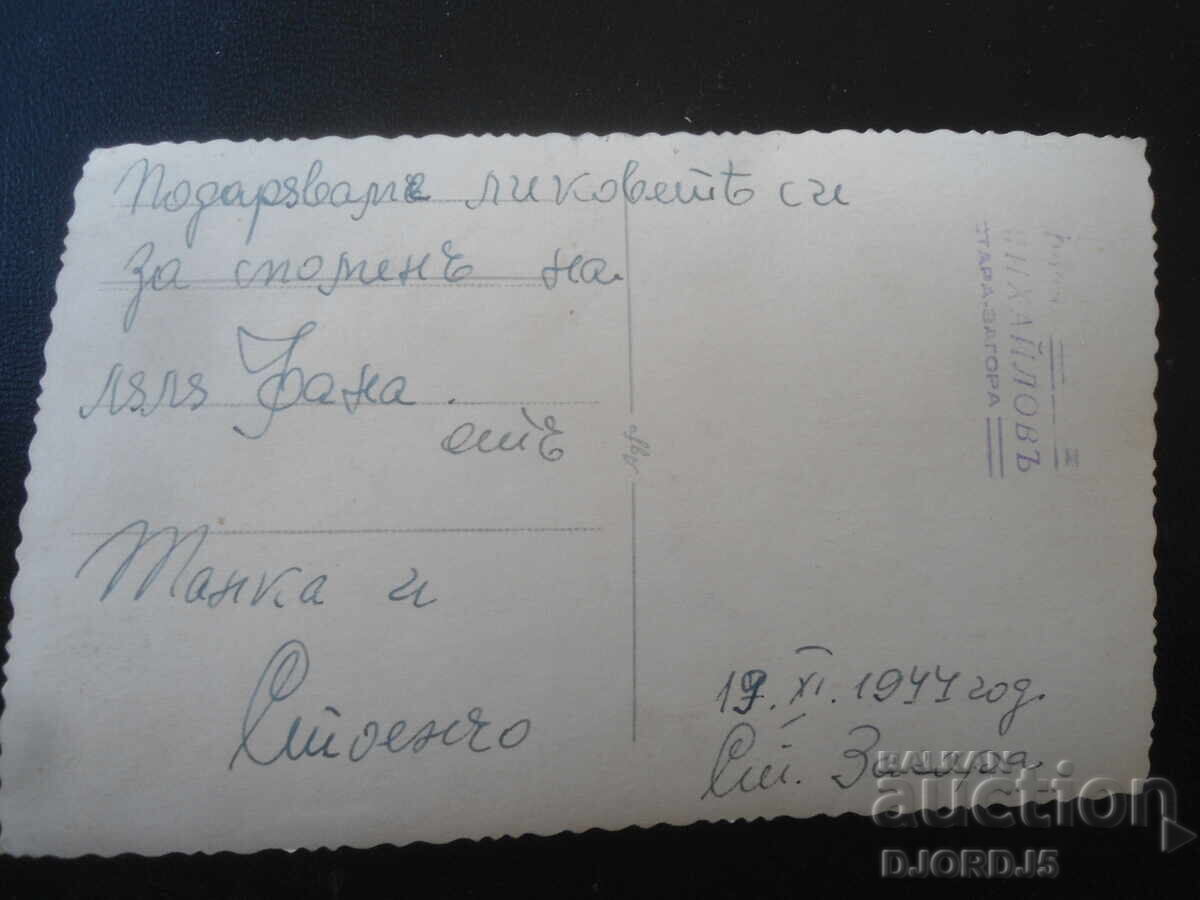 Подарявамe ликоветѣ си
за споменъ на.
леля Фана.
отъ
Танка и
Стоенчо
19. XI. 1944 год.
Ст. Загора.
МИХАЙЛОВЪ
СТАРА-ЗАГОРА
BALKAN
auction
DJORDJ5